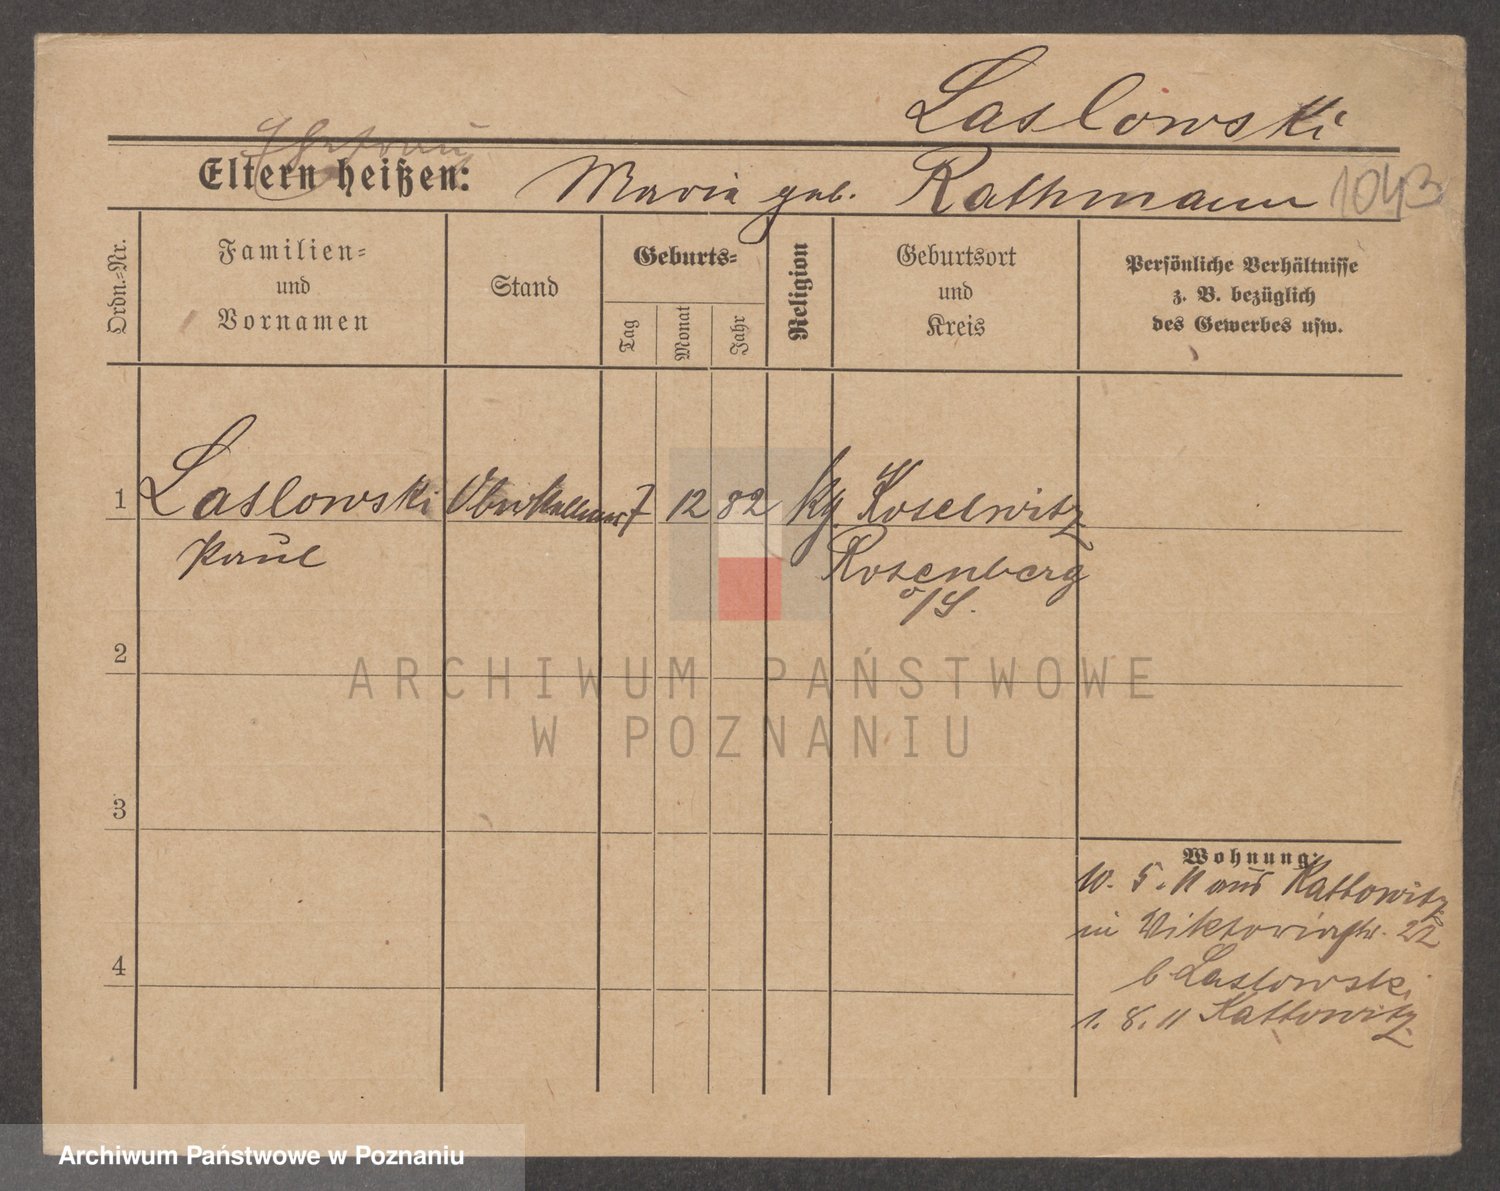 Laslowski
Ehefrau
Eltern heißen: Maria geb. Rathmann 1043
Ordn.-Nr.
Familien-
und
Vornamen
Stand
Geburts-
Tag
Monat
Jahr
Religion
Geburtsort
und
Kreis
Persönliche Verhältnisse
z. B. bezüglich
des Gewerbes usw.
1 Laslowski Oberkellner 7 12 82 kath. Koselwitz
Paul Rosenberg
o/S.
2
ARCHIWUM PAŃSTWOWE
W POZNANIU
3
Wohnung:
10. 5. 11 aus Kattowitz
in Viktoriastr. 22
b Laslowski
4
1. 8. 11 Kattowitz
Archiwum Państwowe w Poznaniu